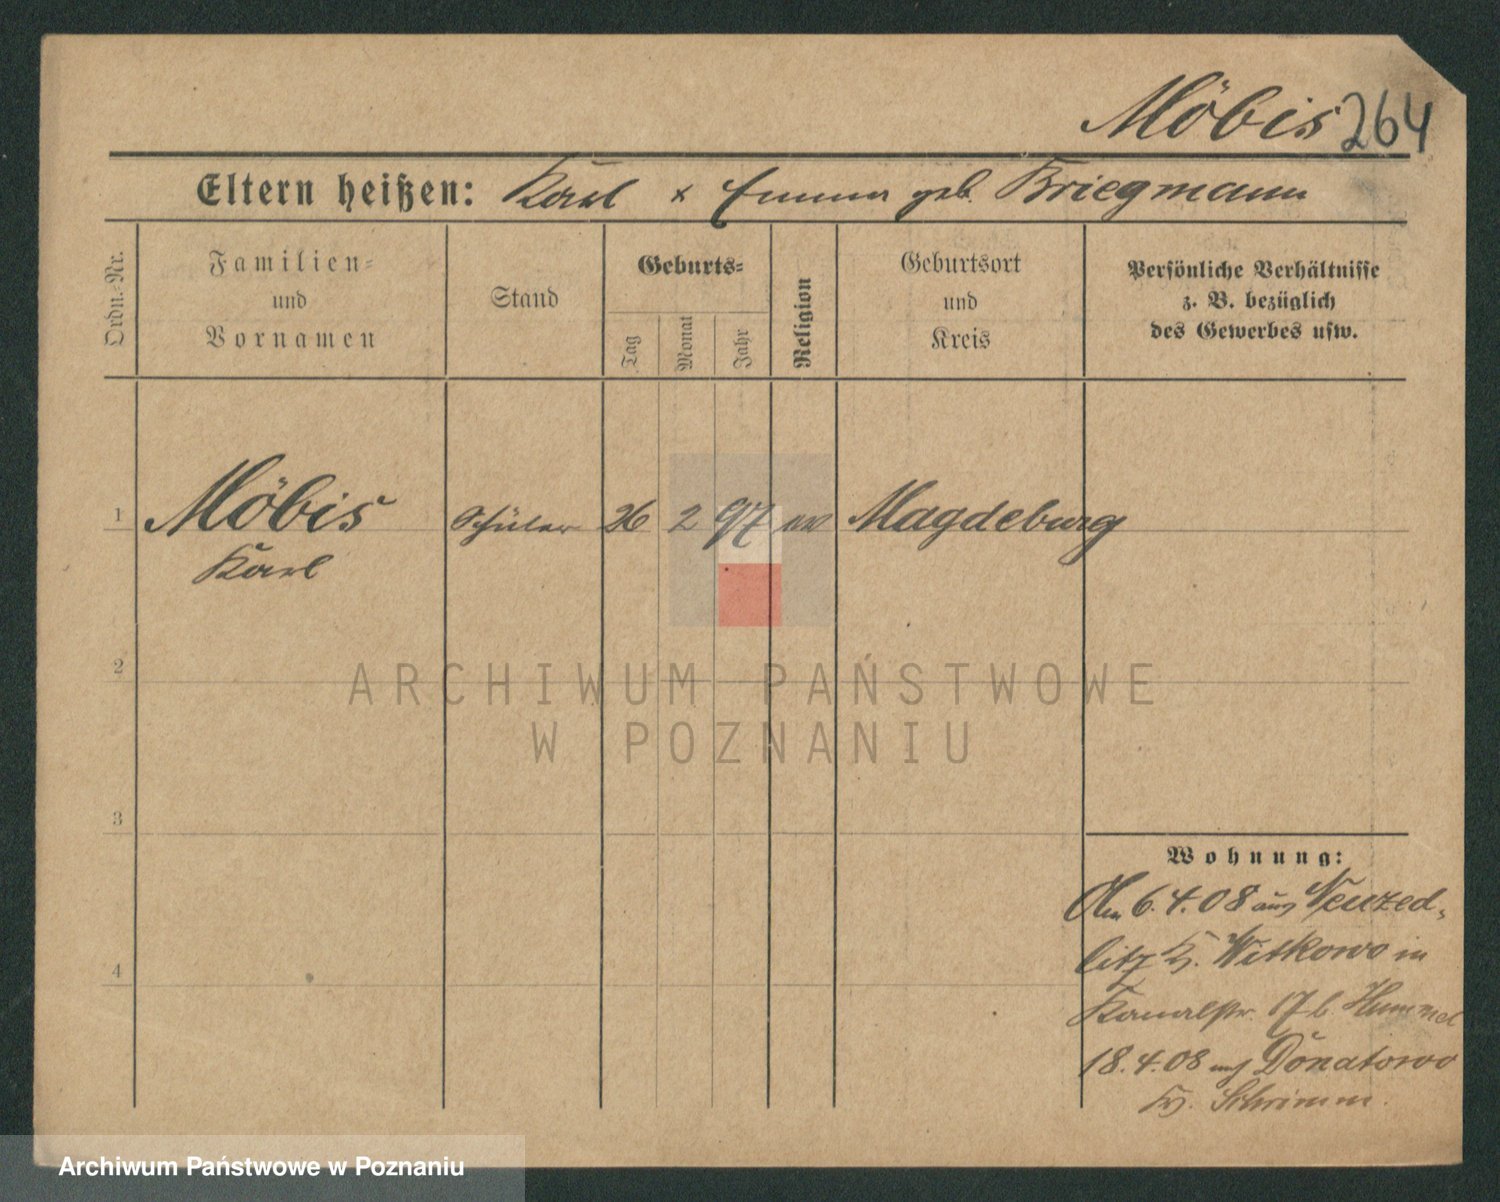 Möbis 264
Eltern heißen: Karl x Emma geb. Briegmann
Ordn.-Nr.
Familien-
und
Vornamen
Stand
Geburts-
Tag
Monat
Jahr
Religion
Geburtsort
und
Kreis
Persönliche Verhältnisse
z. B. bezüglich
des Gewerbes usw.
1 Möbis Schüler 26 2 97 ev Magdeburg
Karl
2
ARCHIWUM PAŃSTWOWE
W POZNANIU
3
Wohnung:
6.4.08 aus Neuzed-
litz Kr. Witkowo in
4
Kanalstr. 17 b. Hummel
18.4.08 nach Donatowo
Kr. Schrimm.
Archiwum Państwowe w Poznaniu